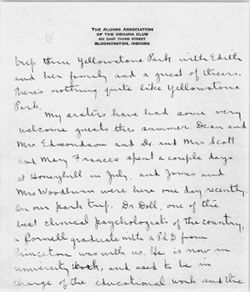 THE ALUMNI ASSOCIATION
OF THE INDIANA CLUB
BLOOMINGTON, INDIANA
trip thru Yellowstone Park with Edith
and her family and a great of theirs.
There's nothing quite like Yellowstone
Park.
My sisters have had some very
welcome guests this summer. Dean and
Mrs Edmondson and Dr and Mrs Scott
and Mary Frances spent a couple days
at Honeyhill in July, and James and
Mrs Woodburn were here one day recently.
On our park trip. Dr. Doll, one of the
best clinical psychologists of the country,
a Cornell graduate with a Ph D from
Princeton was with us. He is now in
university work, and used to be in
charge of the educational work and the